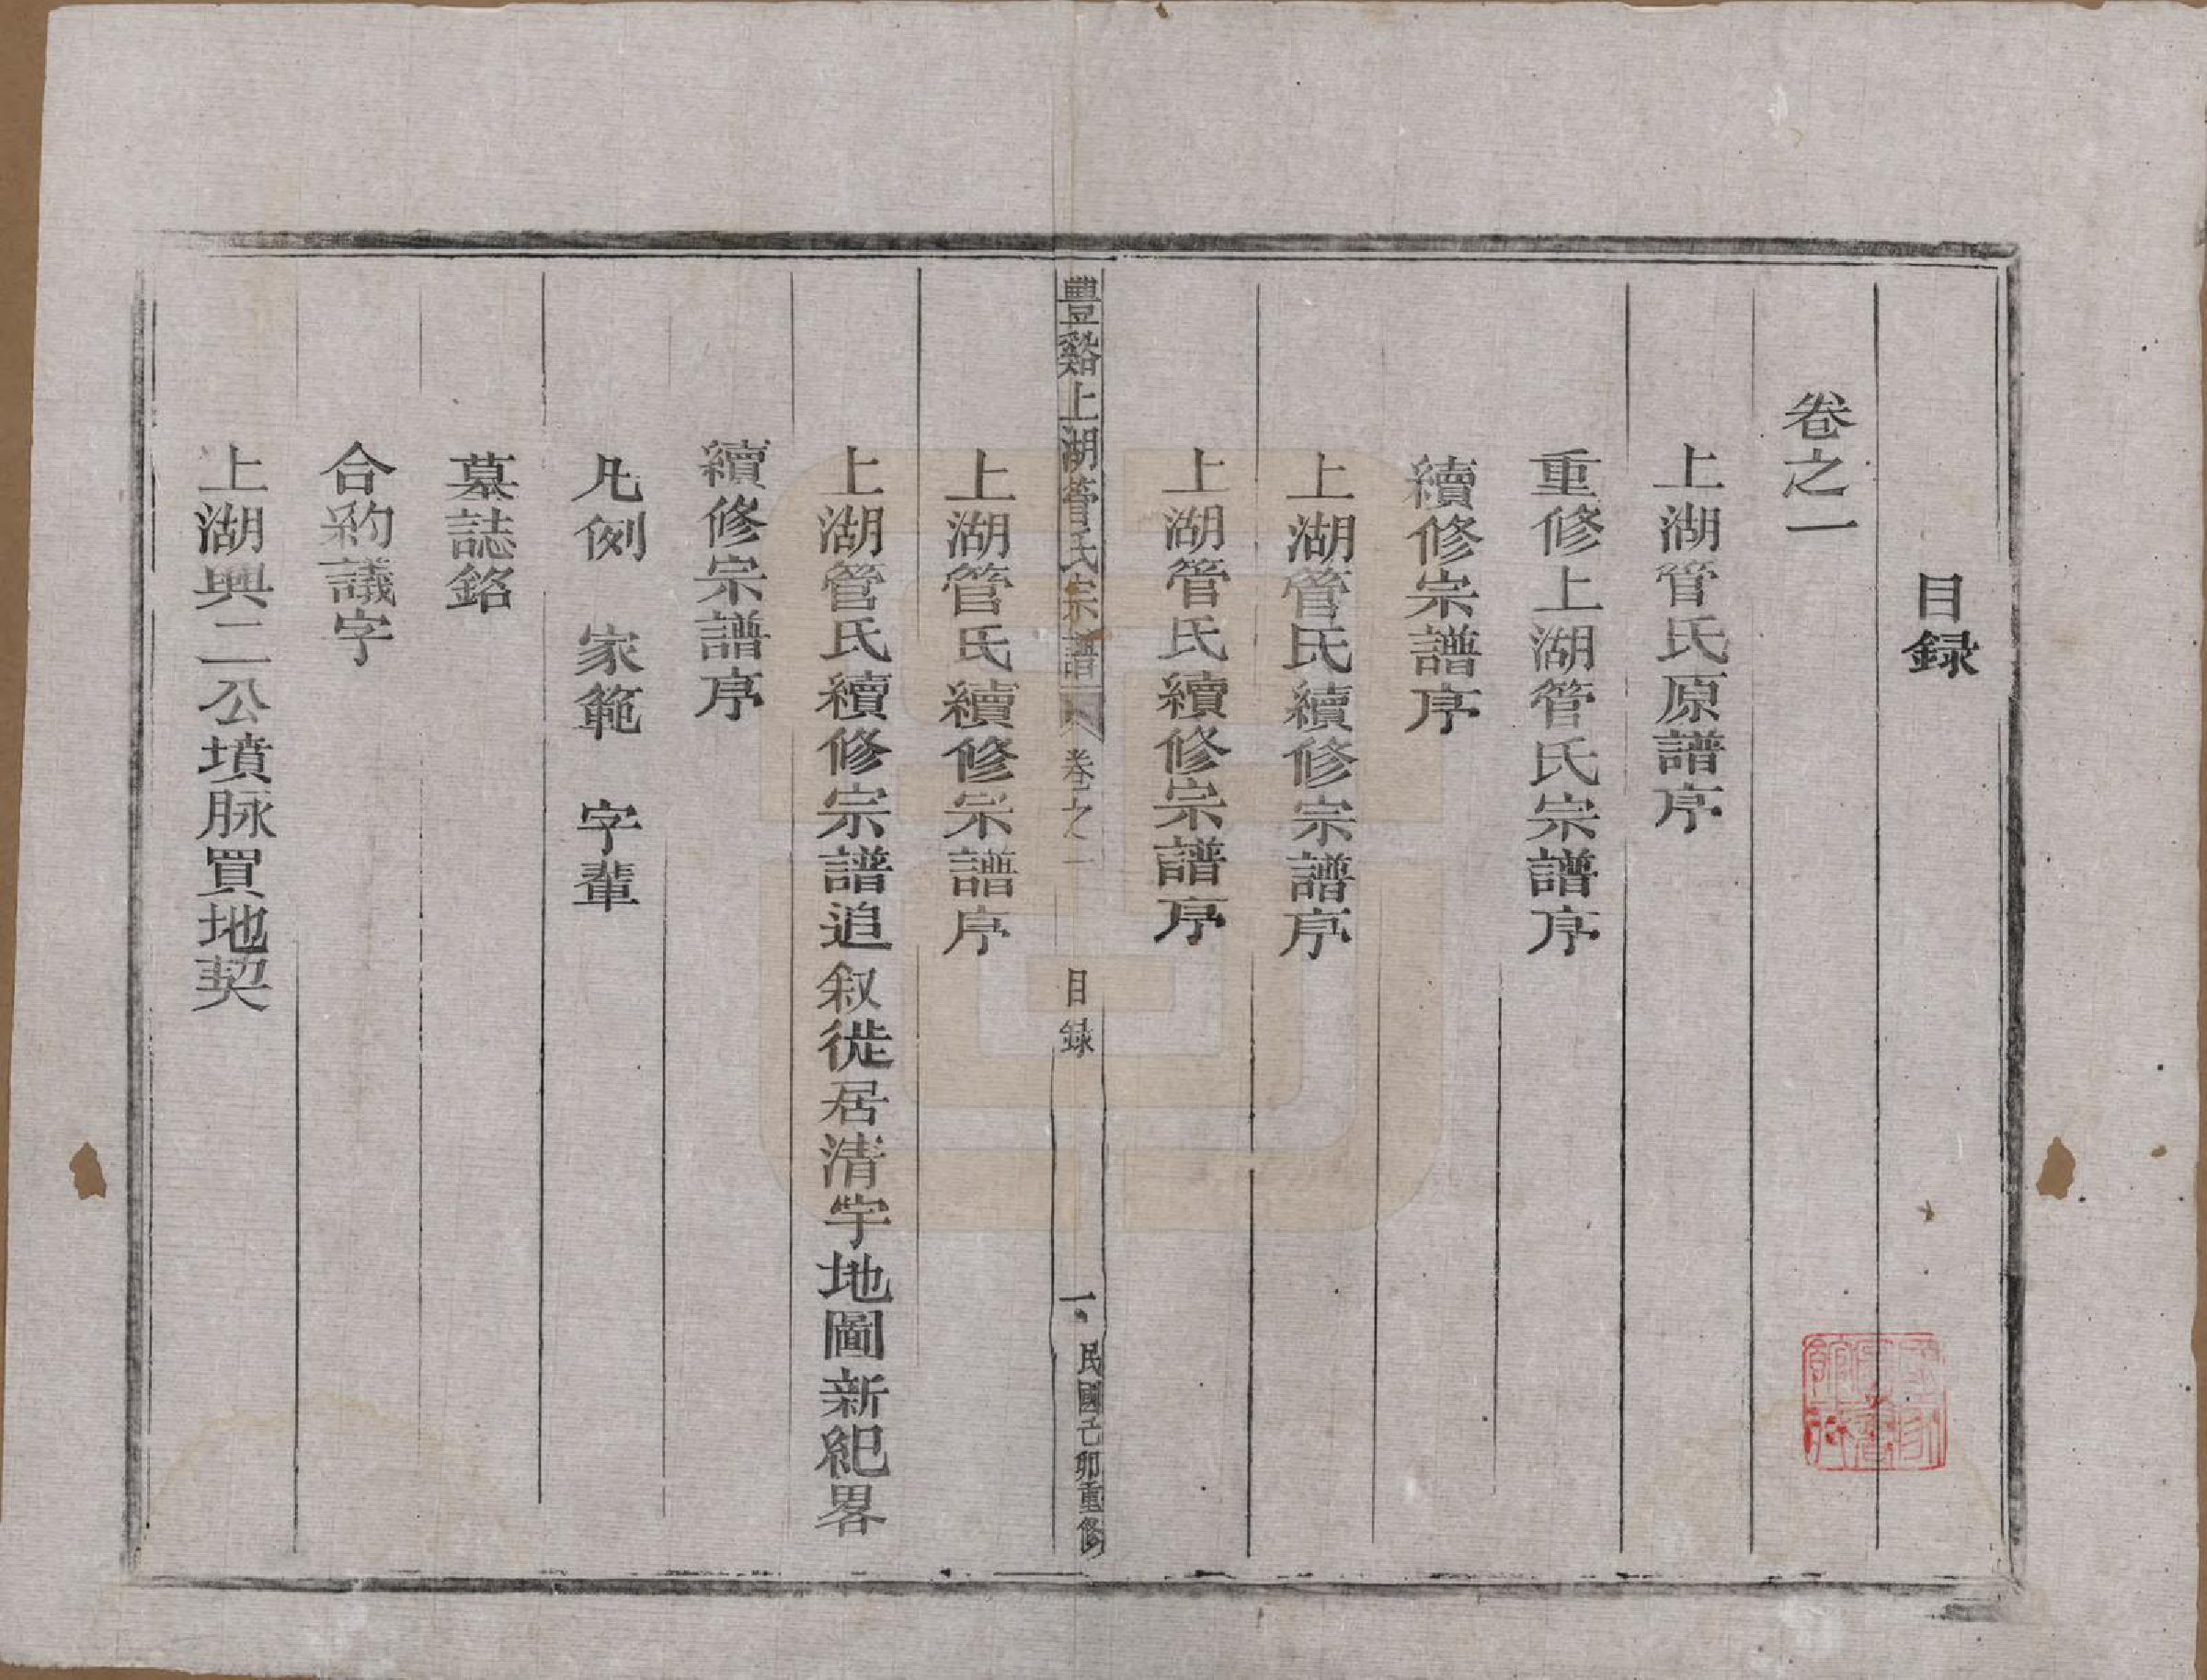 目録
卷之一
上湖管氏原譜序
重修上湖管氏宗譜序
續修宗譜序
上湖管氏續修宗譜序
上湖管氏續修宗譜序
豐谿上湖管氏宗譜 卷之一 目録 一 民國己卯重修
上湖管氏續修宗譜序
上湖管氏續修宗譜追叙徙居清宇地圖新紀畧
續修宗譜序
凡例 家範 字輩
墓誌銘
合約議字
上湖興二公墳脉買地契